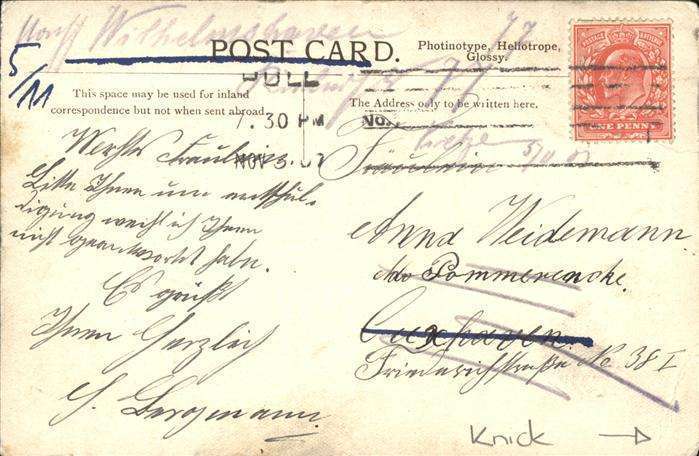 Wilhelmshaven
POST CARD.
Photinotype, Heliotrope,
Glossy.
5/11
HULL
This space may be used for inland
correspondence but not when sent abroad.
The Address only to be written here.
7.30 PM
NOV 3 07
ONE PENNY
Werthes Fräulein.
Bitte Ihnen um entschul-
digung weihl ich Ihnen
nicht geantwortet habe.
Es grüßt
Ihnen Herzlich
Bergmann.
Fräulein
Anna Weidemann.
Ado Pommerencke.
Cuxhaven.
Friederichstraße No 38 I
Knick →